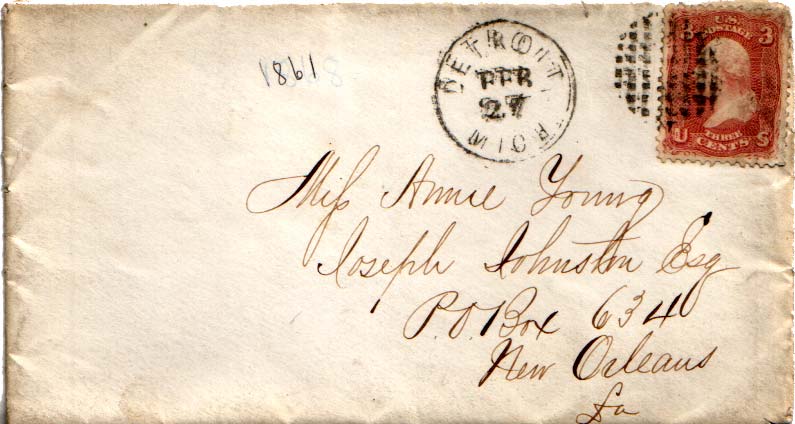 1861
DETROIT
FEB
27
MICH
U.S.
POSTAGE
3
THREE
CENTS
U S
Miss Annie Young
Joseph Johnston Esq
P.O. Box 634
New Orleans
La